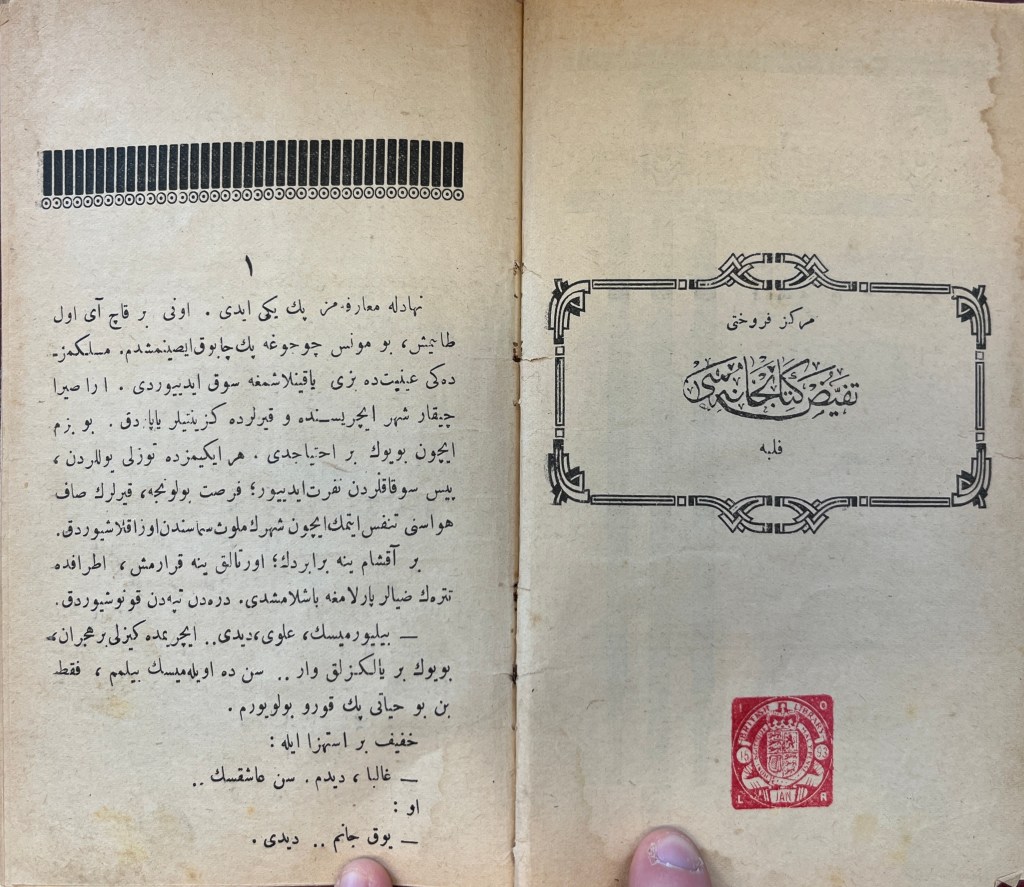 مركز فروختى
تفيّض كتابخانه‌سى
فلبه
BRITISH LIBRARY
JAN
١
نهادله معارفه‌مز پك يكى ايدى . اونى بر قاچ آى اول
طانيمش، بو مونس چوجوغه پك چابوق ايصينمشدم. مسلكمز-
ده‌كى عينيت ده بزى ياقينلاشمغه سوق ايدييوردى . اراصيرا
چيقار شهر ايچريسنده و قيرلرده كزينتيلر ياپاردق . بو بزم
ايچون بويوك بر احتياجدى . هر ايكيمزده توزلى يوللردن ،
پيس سوقاقلردن نفرت ايدييور؛ فرصت بولونجه، قيرلرك صاف
هواسنى تنفس ايتمك ايچون شهرك ملوث سماسندن اوزاقلاشيوردق.
بر آقشام ينه برابردك؛ اورتالق ينه قرارمش ، اطرافده
تتره‌ك ضيالر پارلامغه باشلامشدى. دره‌دن تپه‌دن قونوشيوردق.
— بيليورميسك، علوى، ديدى.. ايچريمده كيزلى بر هجران،
بويوك بر يالكزلق وار .. سن ده اويله‌ميسك بيلمم ، فقط
بن بو حياتى پك قورو بولويورم .
خفيف بر استهزا ايله :
— غالبا ، ديدم . سن عاشقسك ..
او :
— يوق جانم .. ديدى .